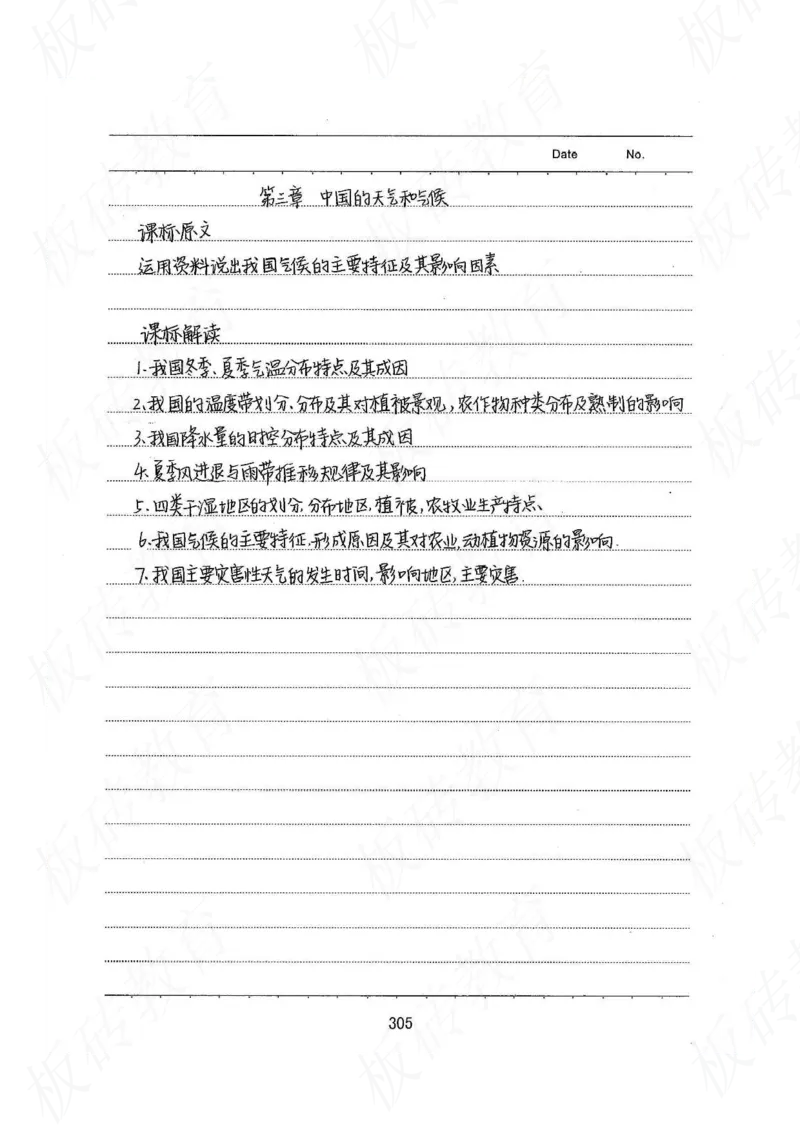 Date No.
第三章 中国的天气和气候
课标原文
运用资料说出我国气候的主要特征及其影响因素
课标解读
1.我国冬季、夏季气温分布特点及其成因
2、我国的温度带划分、分布及其对植被景观，农作物种类分布及熟制的影响
3、我国降水量的时空分布特点及其成因
4、夏季风进退与雨带推移规律及其影响
5、四类干湿地区的划分，分布地区，植被，农牧业生产特点、
6、我国气候的主要特征，形成原因及其对农业，动植物资源的影响.
7、我国主要灾害性天气的发生时间，影响地区，主要灾害.
305
板砖教育